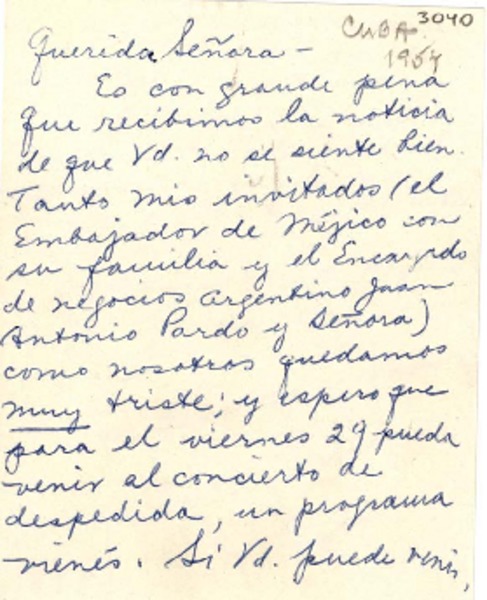 3040
CUBA
1954
Querida Señora -
Es con grande pena
que recibimos la noticia
de que Vd. no se siente bien.
Tanto mis invitados (el
Embajador de Méjico con
su familia y el Encargado
de negocios argentino Juan
Antonio Pardo y Señora)
como nosotros quedamos
muy triste; y espero que
para el viernes 29 pueda
venir al concierto de
despedida, un programa
vienés. Si Vd. puede venir,